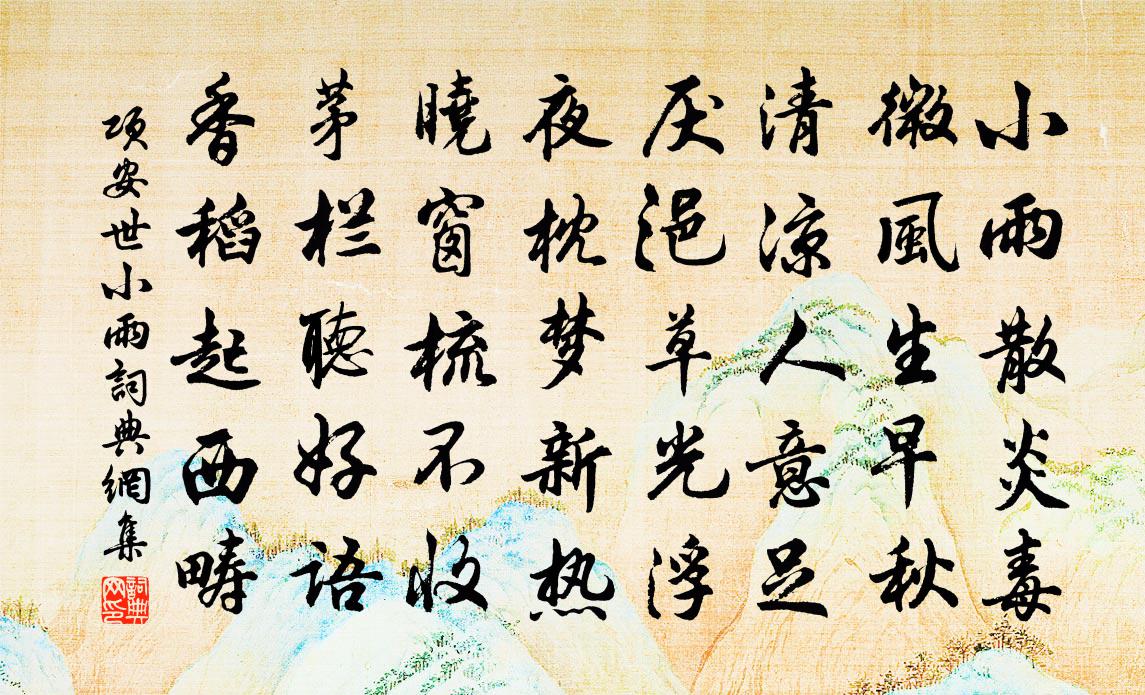 小雨散炎毒
微風生早秋
清涼人意足
厌浥草光浮
夜枕梦新热
曉窗梳不收
茅栏聽好語
香稻起西疇
項安世小雨詞典網集
詞典网印